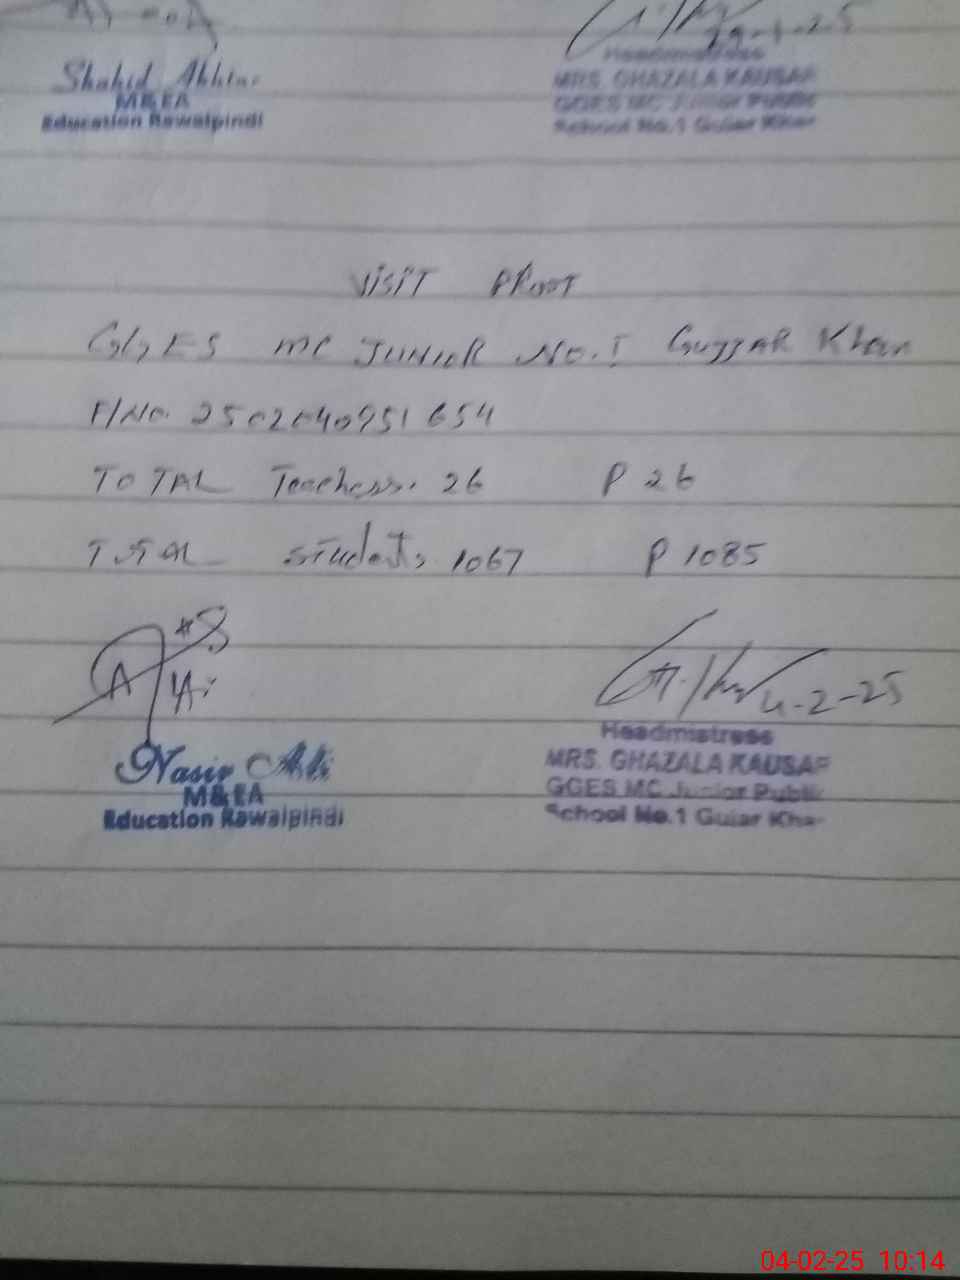 Shahid Akhtar
M&EA
Education Rawalpindi
-1-25
Headmistress
MRS. GHAZALA KAUSAR
GGES MC Junior Public
School No.1 Gujar Khan
VISIT PROOF
GGES MC JUNIOR NO.I GUJJAR Khan
F/No. 2502040951654
TOTAL Teachers. 26 P 26
TOTAL students 1067 P 1085
4-2-25
Nasir Ali
M&EA
Education Rawalpindi
Headmistress
MRS. GHAZALA KAUSAR
GGES MC Junior Public
School No.1 Gujar Khan
04-02-25 10:14